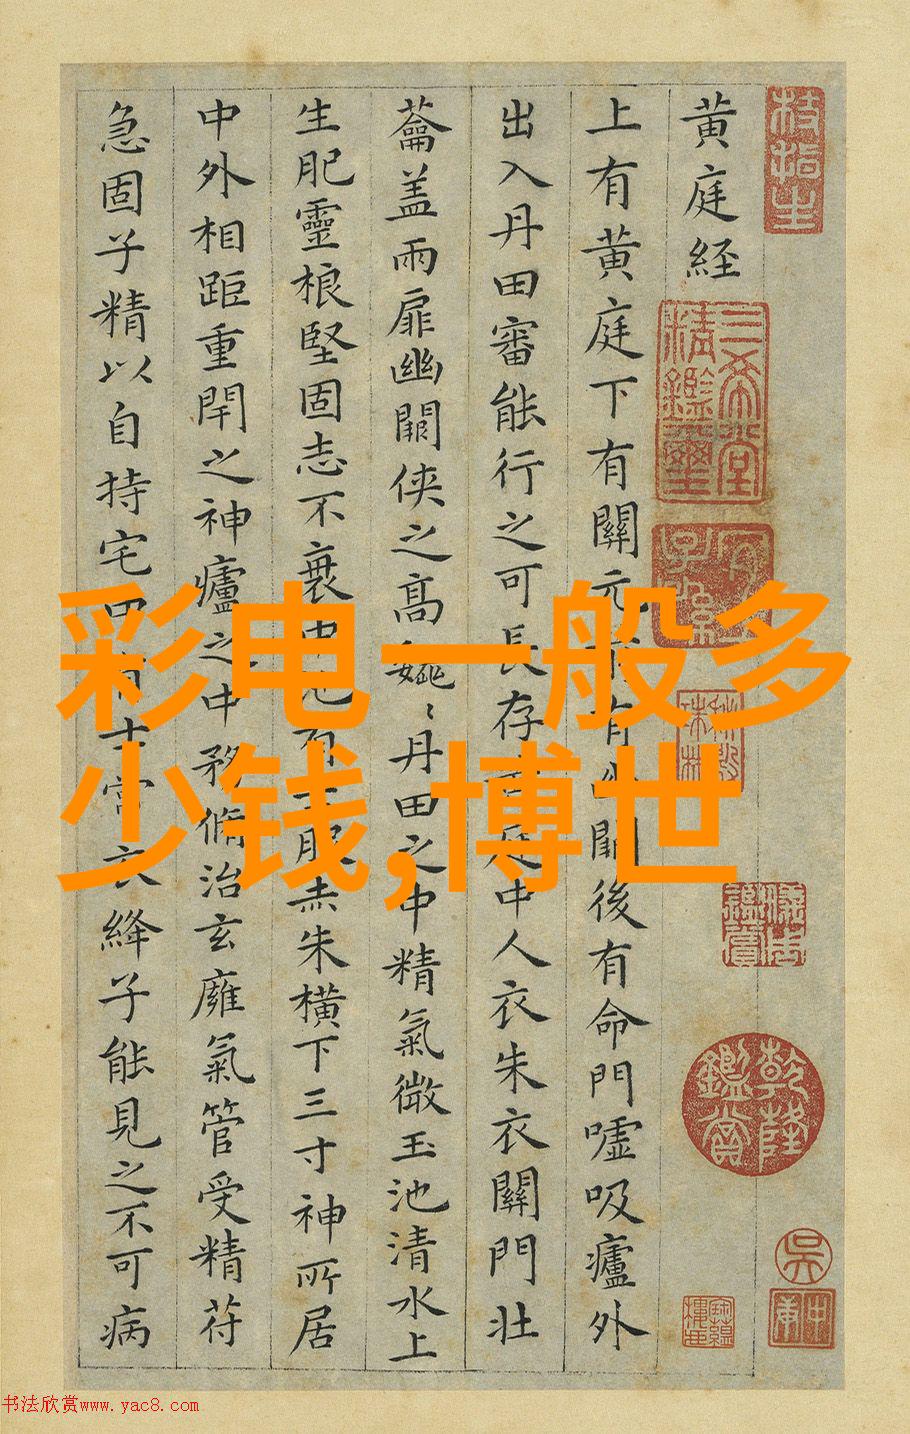 黄庭経
上有黄庭下有關元前有幽闕後有命門嘘吸廬外
出入丹田審能行之可長存黄庭中人衣朱衣關門壯
蘥盖兩扉幽闕侠之高巍丹田之中精氣微玉池清水上
生肥靈根堅固志不衰中池有士服赤朱橫下三寸神所居
中外相距重閇之神廬之中務脩治玄廱氣管受精苻
急固子精以自持宅中有士當衣絳子能見之不可病
彩电一般多
少钱,博世
三希堂
精鑑璽
乾隆
鑑賞
吳
书法欣赏www.yac8.com